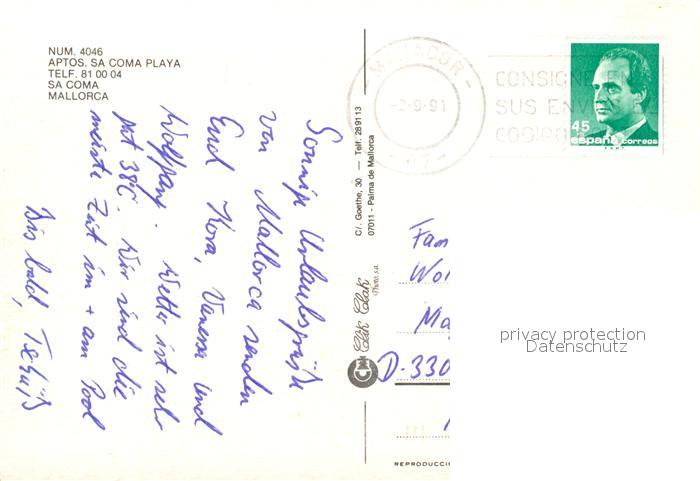 NUM. 4046
APTOS. SA COMA PLAYA
TELF. 81 00 04
SA COMA
MALLORCA
Sonnige Urlaubsgrüße
von Mallorca senden
Euch Kora, Vanessa und
Wolfgang. Wetter ist sehr
gut 38°C. Wir sind die
meiste Zeit im + am Pool
Bis bald, Tschüß
C/. Goethe, 30 — Telf. 289113
07011 - Palma de Mallorca
Clik Clak
Photo, s.a.
MANACOR
-2-9-91
07
CONSIGNE EN
SUS ENV
CODIGO
45
españa correos
Fam
Wol
Ma
D-330
privacy protection
Datenschutz
REPRODUCCI